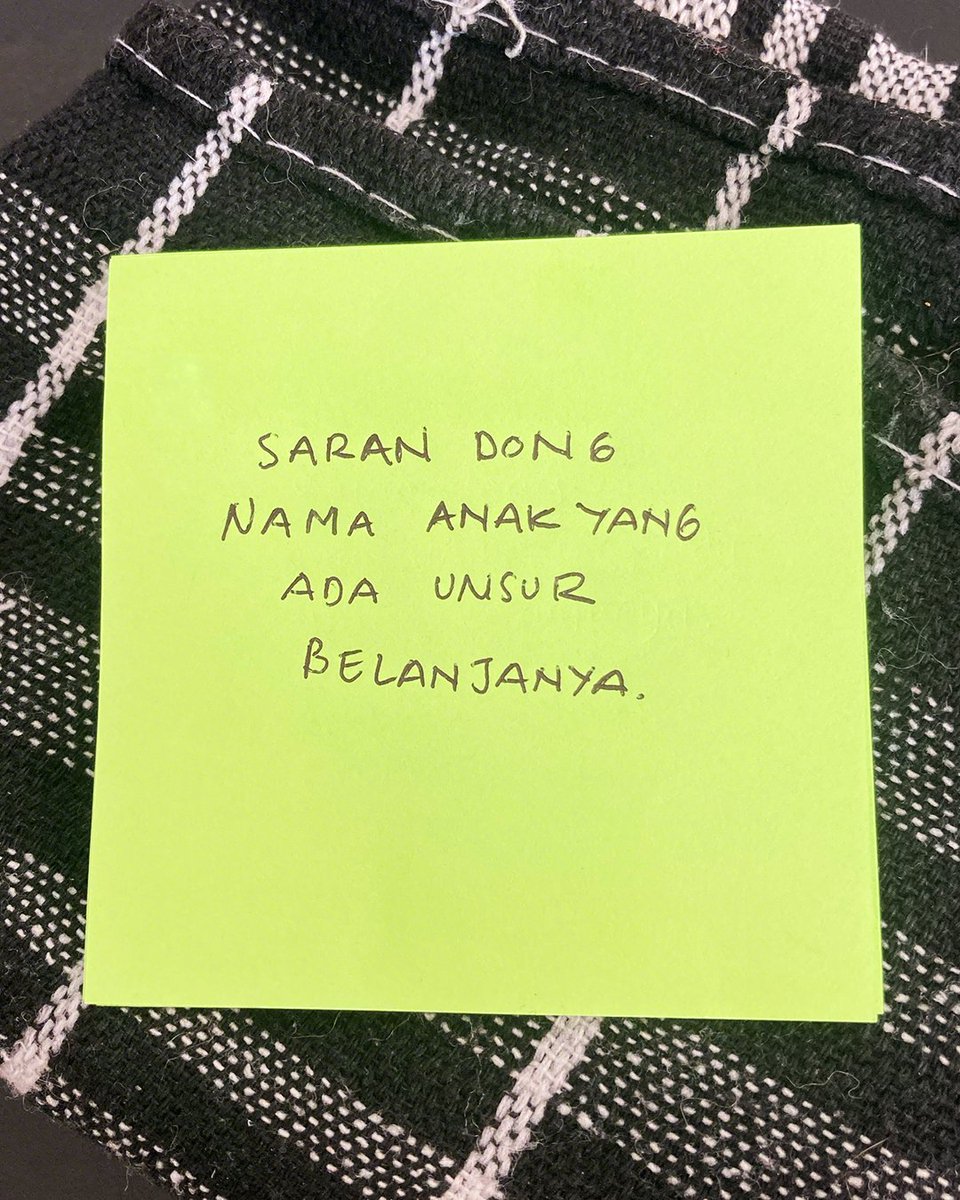 SARAN DONG
NAMA ANAK YANG
ADA UNSUR
BELANJANYA.